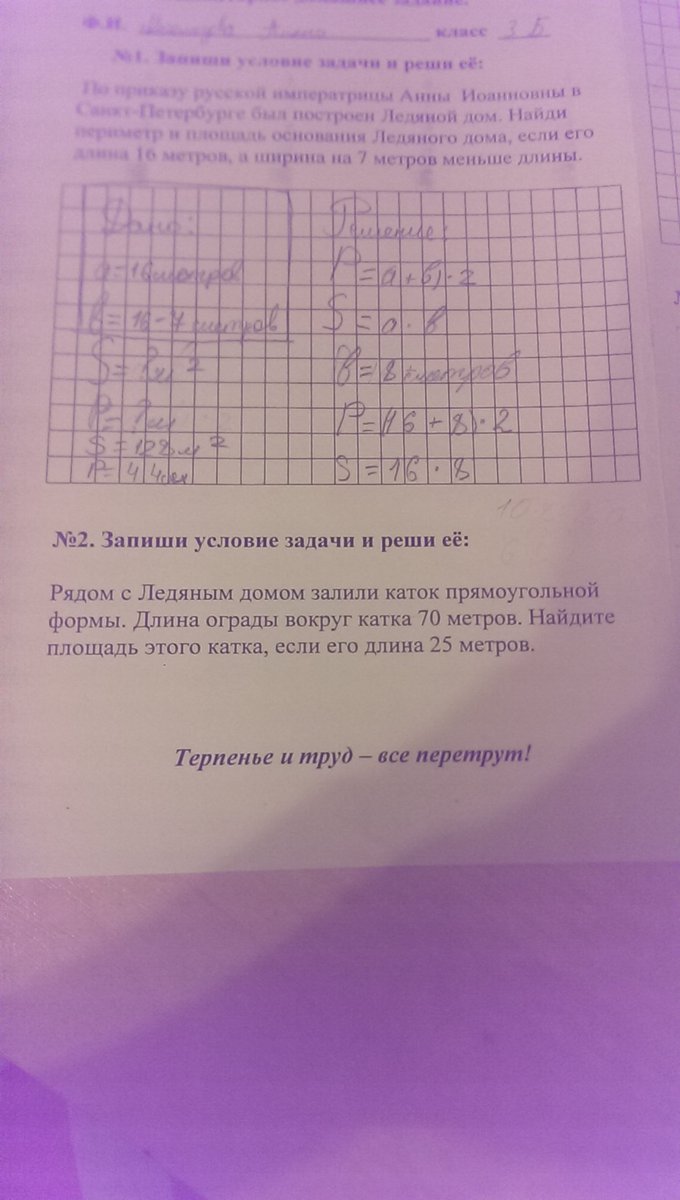 Ф.И. класс 3 Б
№1. Запиши условие задачи и реши её:
По приказу русской императрицы Анны Иоанновны в
Санкт-Петербурге был построен Ледяной дом. Найди
периметр и площадь основания Ледяного дома, если его
длина 16 метров, а ширина на 7 метров меньше длины.
Дано: Решение:
a=16метров P=a+b)·2
b=16-7метров S=a·b
S=?м² b=8метров
P=?м P=(16+8)·2
S=128м² S=16·8
P=44м
№2. Запиши условие задачи и реши её:
Рядом с Ледяным домом залили каток прямоугольной
формы. Длина ограды вокруг катка 70 метров. Найдите
площадь этого катка, если его длина 25 метров.
Терпенье и труд – все перетрут!